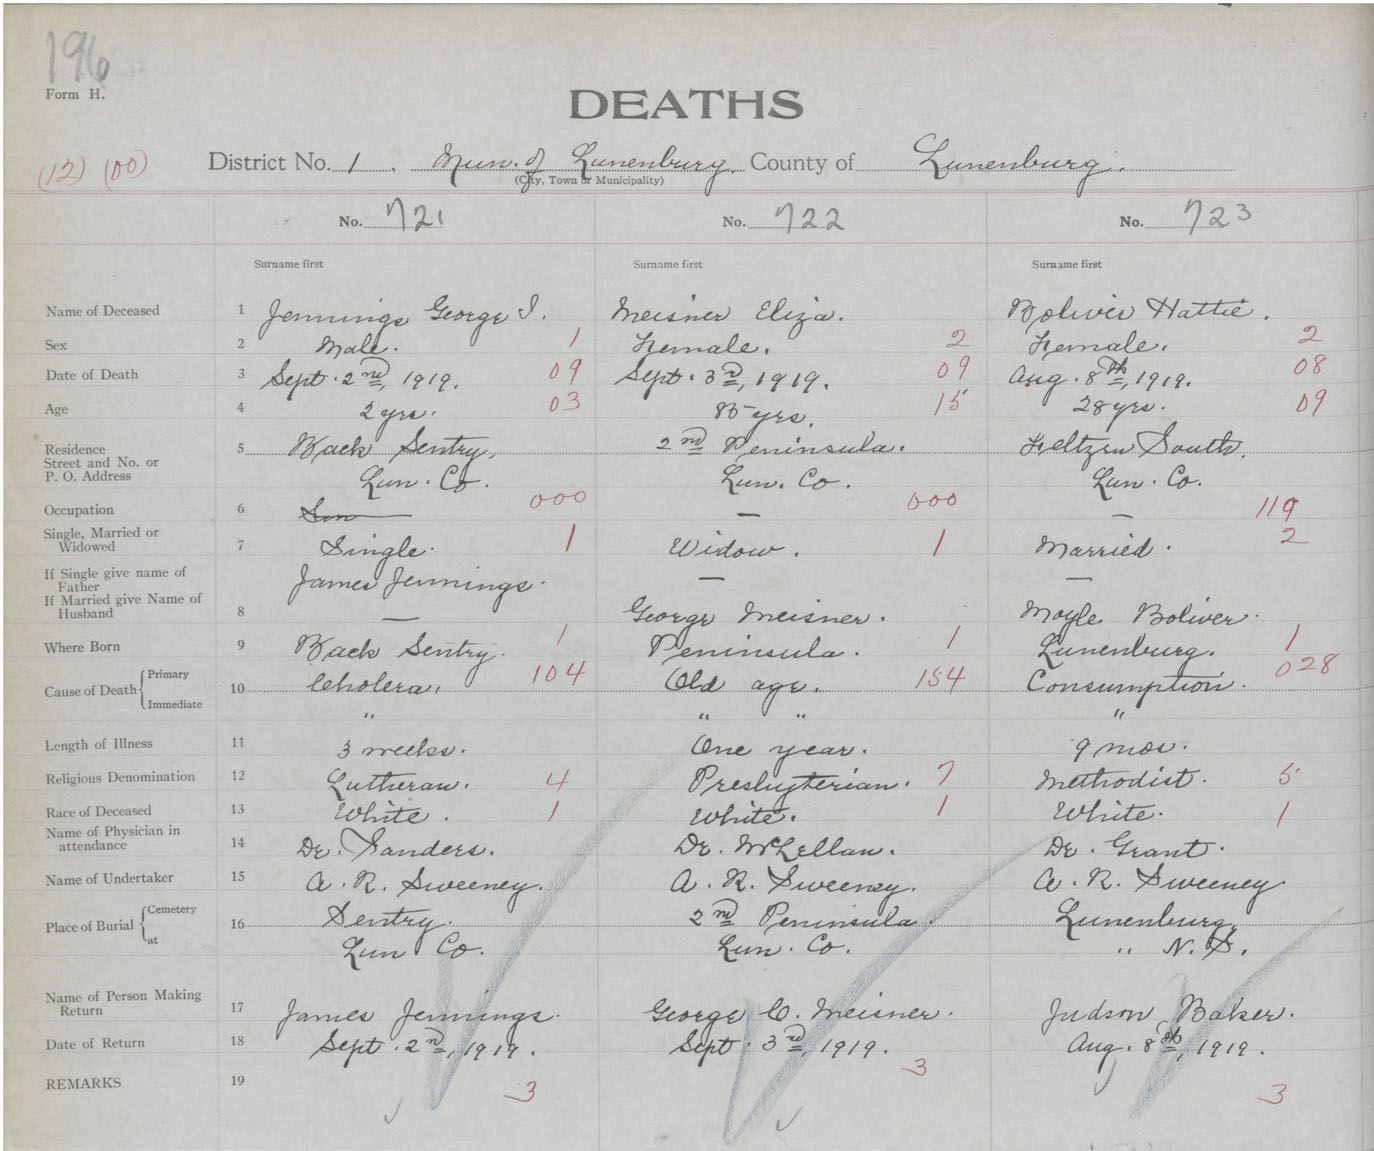 196
Form H.
DEATHS
(12) (00) District No. 1. Mun. of Lunenburg. County of Lunenburg.
(City, Town or Municipality)
No. 721 No. 722 No. 723
Surname first Surname first Surname first
Name of Deceased 1 Jennings George I. Meisner Eliza. Boliver Hattie.
Sex 2 Male. 1 Female. 2 Female. 2
Date of Death 3 Sept. 2nd, 1919. 09 Sept. 3rd, 1919. 09 Aug. 8th, 1919. 08
Age 4 2 yrs. 03 85 yrs. 15 28 yrs. 09
Residence 5 Back Sentry, 2nd Peninsula. Feltzen South,
Street and No. or
P. O. Address Lun. Co. Lun. Co. Lun. Co.
Occupation 6 Son 000 — 000 — 119
Single, Married or
Widowed 7 Single. 1 Widow. 1 Married. 2
If Single give name of
Father James Jennings. — —
If Married give Name of
Husband 8 — George Meisner. Moyle Boliver.
Where Born 9 Back Sentry. 1 Peninsula. 1 Lunenburg. 1
Cause of Death { Primary 10 Cholera. 104 Old age. 154 Consumption. 028
Immediate " " " "
Length of Illness 11 3 weeks. One year. 9 mos.
Religious Denomination 12 Lutheran. 4 Presbyterian. 7 Methodist. 5
Race of Deceased 13 White. 1 White. 1 White. 1
Name of Physician in
attendance 14 Dr. Sanders. Dr. McLellan. Dr. Grant.
Name of Undertaker 15 A. R. Sweeney. A. R. Sweeney. A. R. Sweeney.
Place of Burial { Cemetery 16 Sentry. 2nd Peninsula. Lunenburg,
at Lun Co. Lun. Co. " N. S.
Name of Person Making
Return 17 James Jennings. George C. Meisner. Judson Baker.
Date of Return 18 Sept. 2nd, 1919. Sept. 3rd, 1919. Aug. 8th, 1919.
REMARKS 19 3 3 3